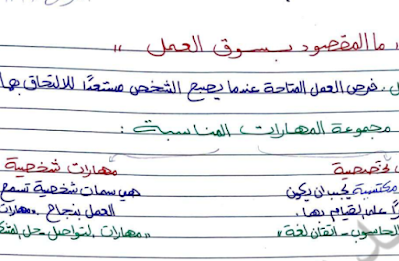 ما المقصود بسوق العمل "
فرص العمل المتاحة عندما يصبح الشخص مستعدًا للالتحاق بها
مجموعة المهارات المناسبة :
مهارات شخصية
مكتسبة يجب ان يكون
هي سمات شخصية تسمح
على القيام بها.
العمل بنجاح . مهارات
الحاسوب - اتقان لغة "
" مهارات التواصل - حل